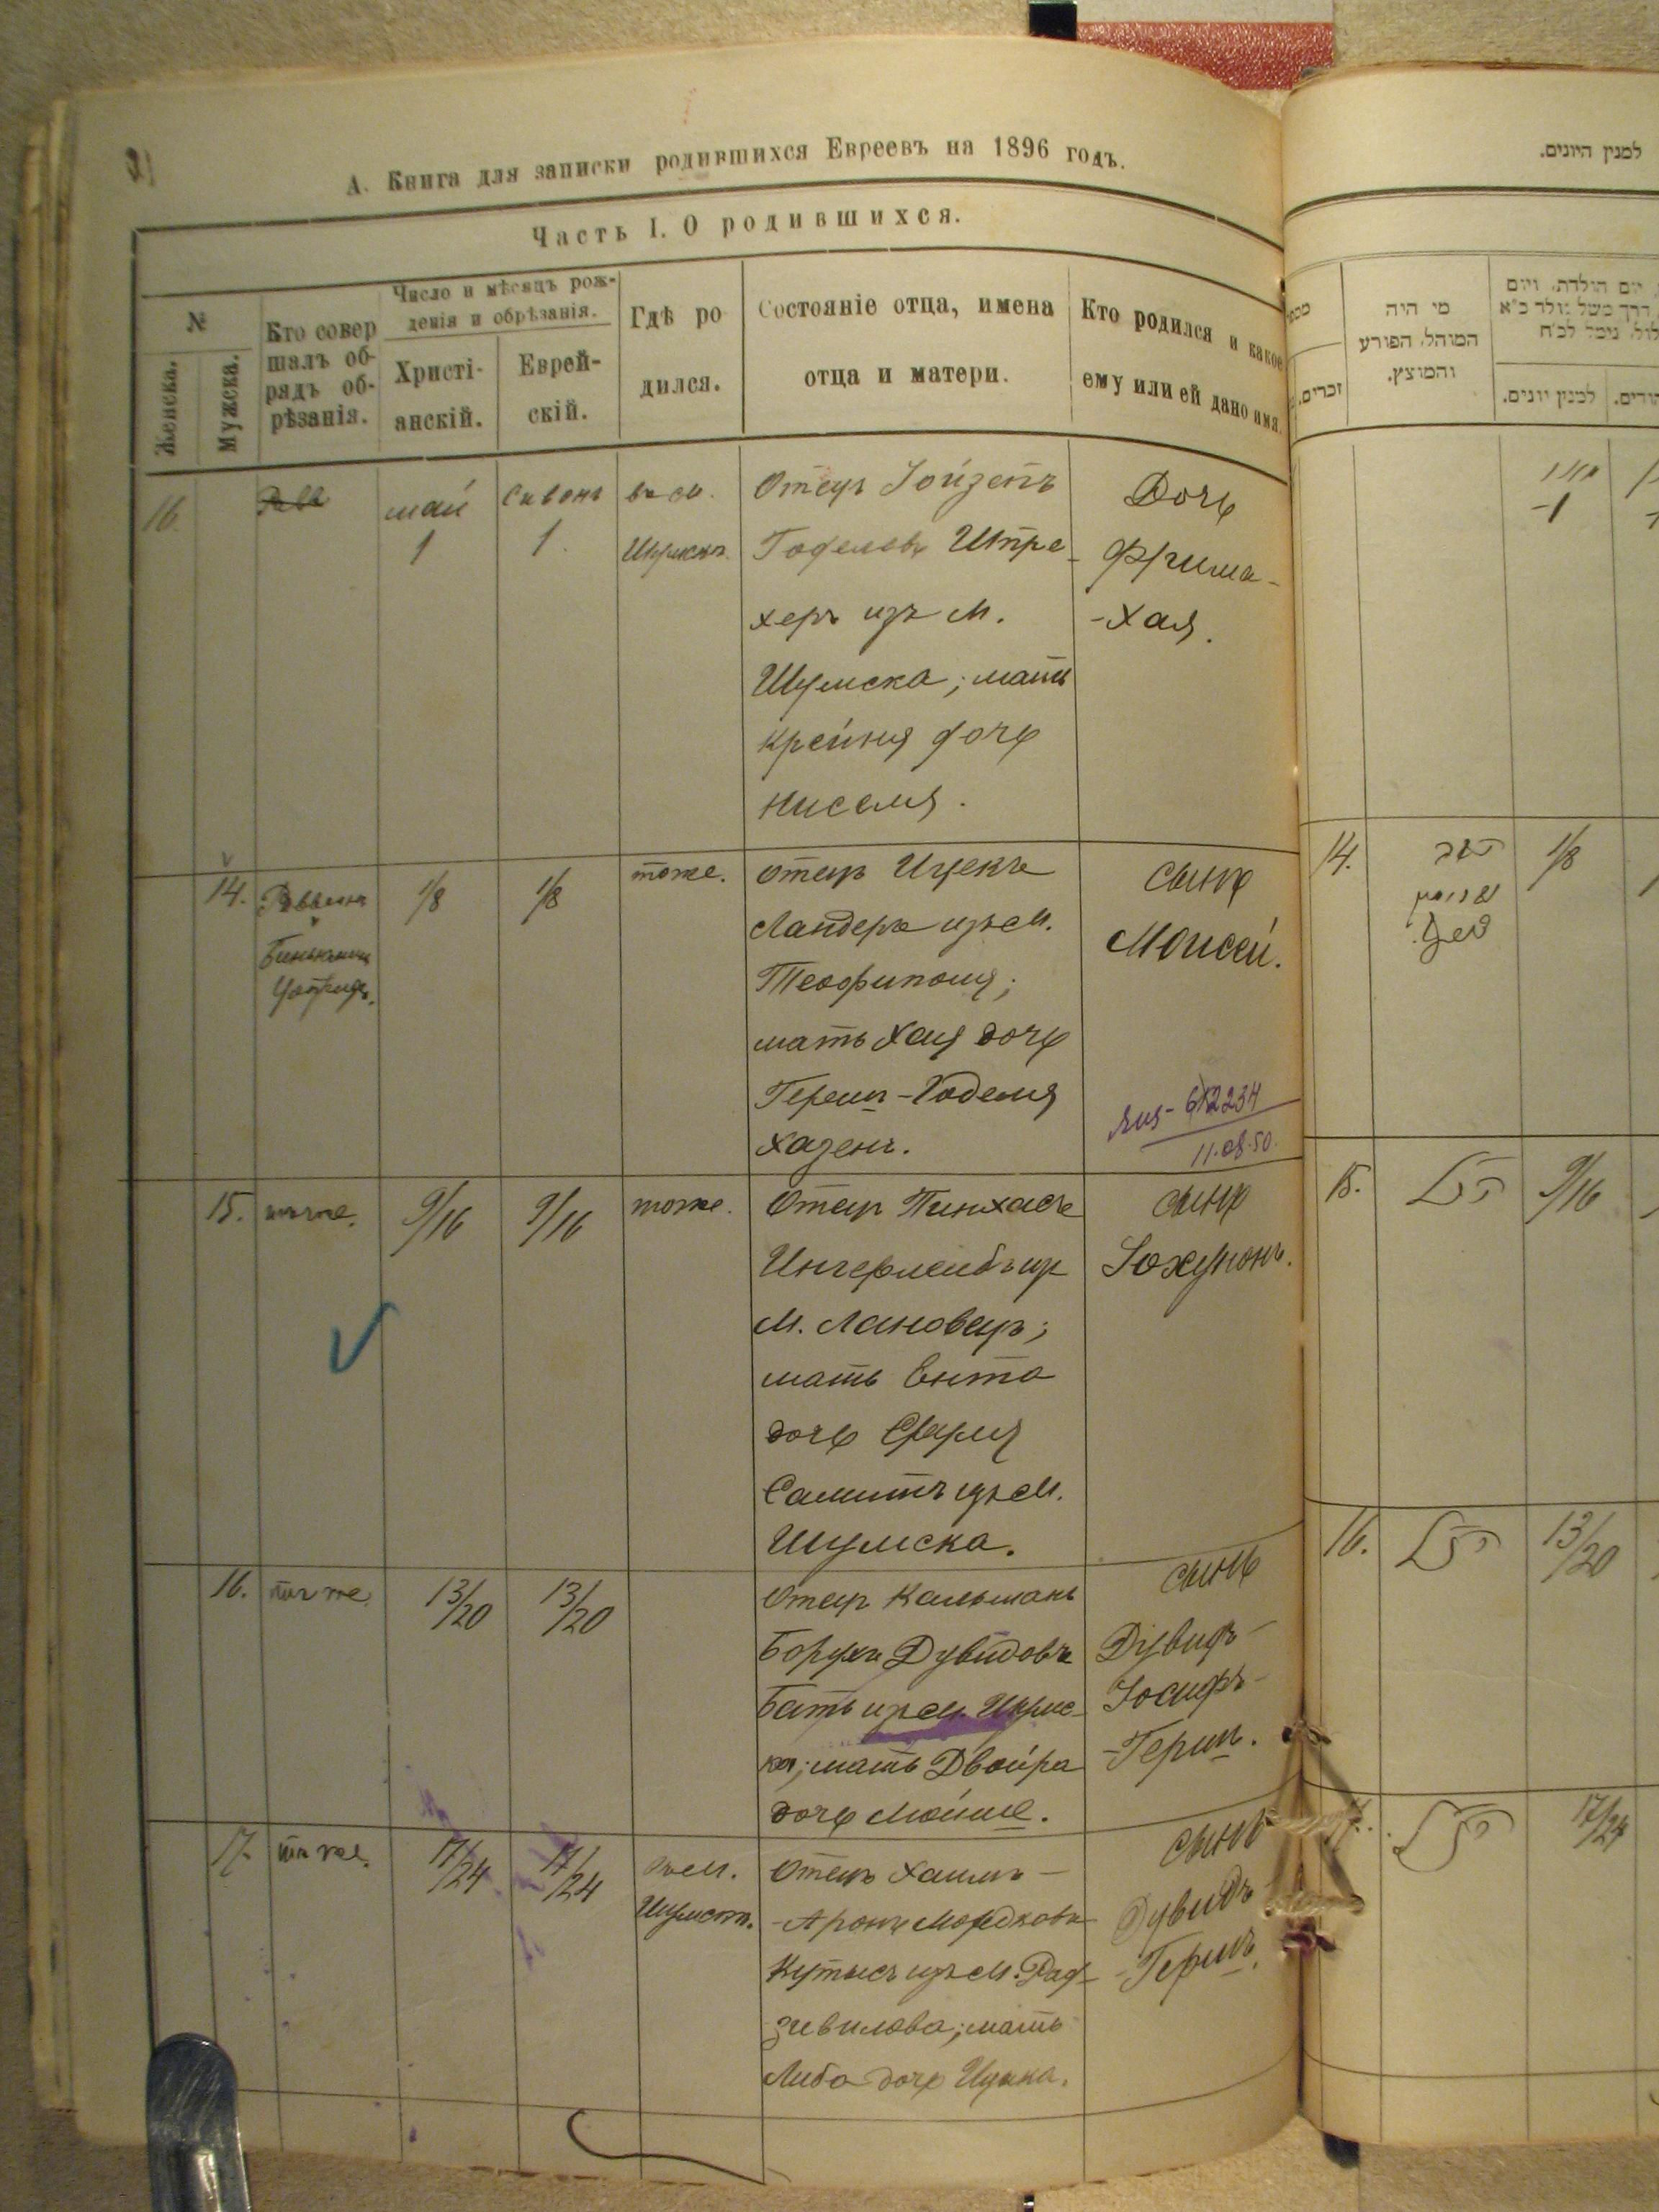 А. Книга для записки родившихся Евреевъ на 1896 годъ.
Часть I. О родившихся.
№
Женска.
Мужска.
Кто совер
шалъ об-
рядъ об-
рѣзанія.
Число и мѣсяцъ рож-
денія и обрѣзанія.
Христі-
анскій.
Еврей-
скій.
Гдѣ ро
дился.
Состояніе отца, имена
отца и матери.
Кто родился и какое
ему или ей дано имя.
16.
май
1
Сивонъ
1.
въ м.
Шумскъ.
Отецъ Іойзепъ
Годелевъ Штре-
херъ изъ М.
Шумска; мать
Крейня дочь
Ниселя.
Дочь
Фрима-
-Хая.
14.
Раввинъ
1/8
1/8
тоже.
Отецъ Ицекъ
Ландеръ изъ М.
Теофиполя;
мать Хая дочь
Герш-Годеля
Хазенъ.
сынъ
Моисей.
11.08.50.
15.
тоже.
9/16
9/16
тоже.
Отецъ Пинхасъ
Ингерлейбъ из
М. Лановецъ;
мать Ента
дочь Сруля
изъ М.
Шумска.
сынъ
Іохунонъ.
16.
тоже.
13/20
13/20
Отецъ Кальманъ
Борухъ Дувидовъ
Бать изъ М. Шумс-
ка; мать Двойра
дочь Мойше.
сынъ
Дувидъ-
Іосифъ-
-Герш.
17.
тоже.
17/24
17/24
въ М.
Шумскъ.
Отецъ Хаимъ-
-Аронъ Мордковъ
Кутысъ изъ М. Рад-
зивилова; мать
Либа дочь Ицика.
сынъ
Дувидъ
-Гершъ.
למנין היונים.
מי היה
המוהל, הפורע
והמוצץ.
זכרים.
למנין יונים.
1
14.
1/8
15.
9/16
16.
13/20
17/24